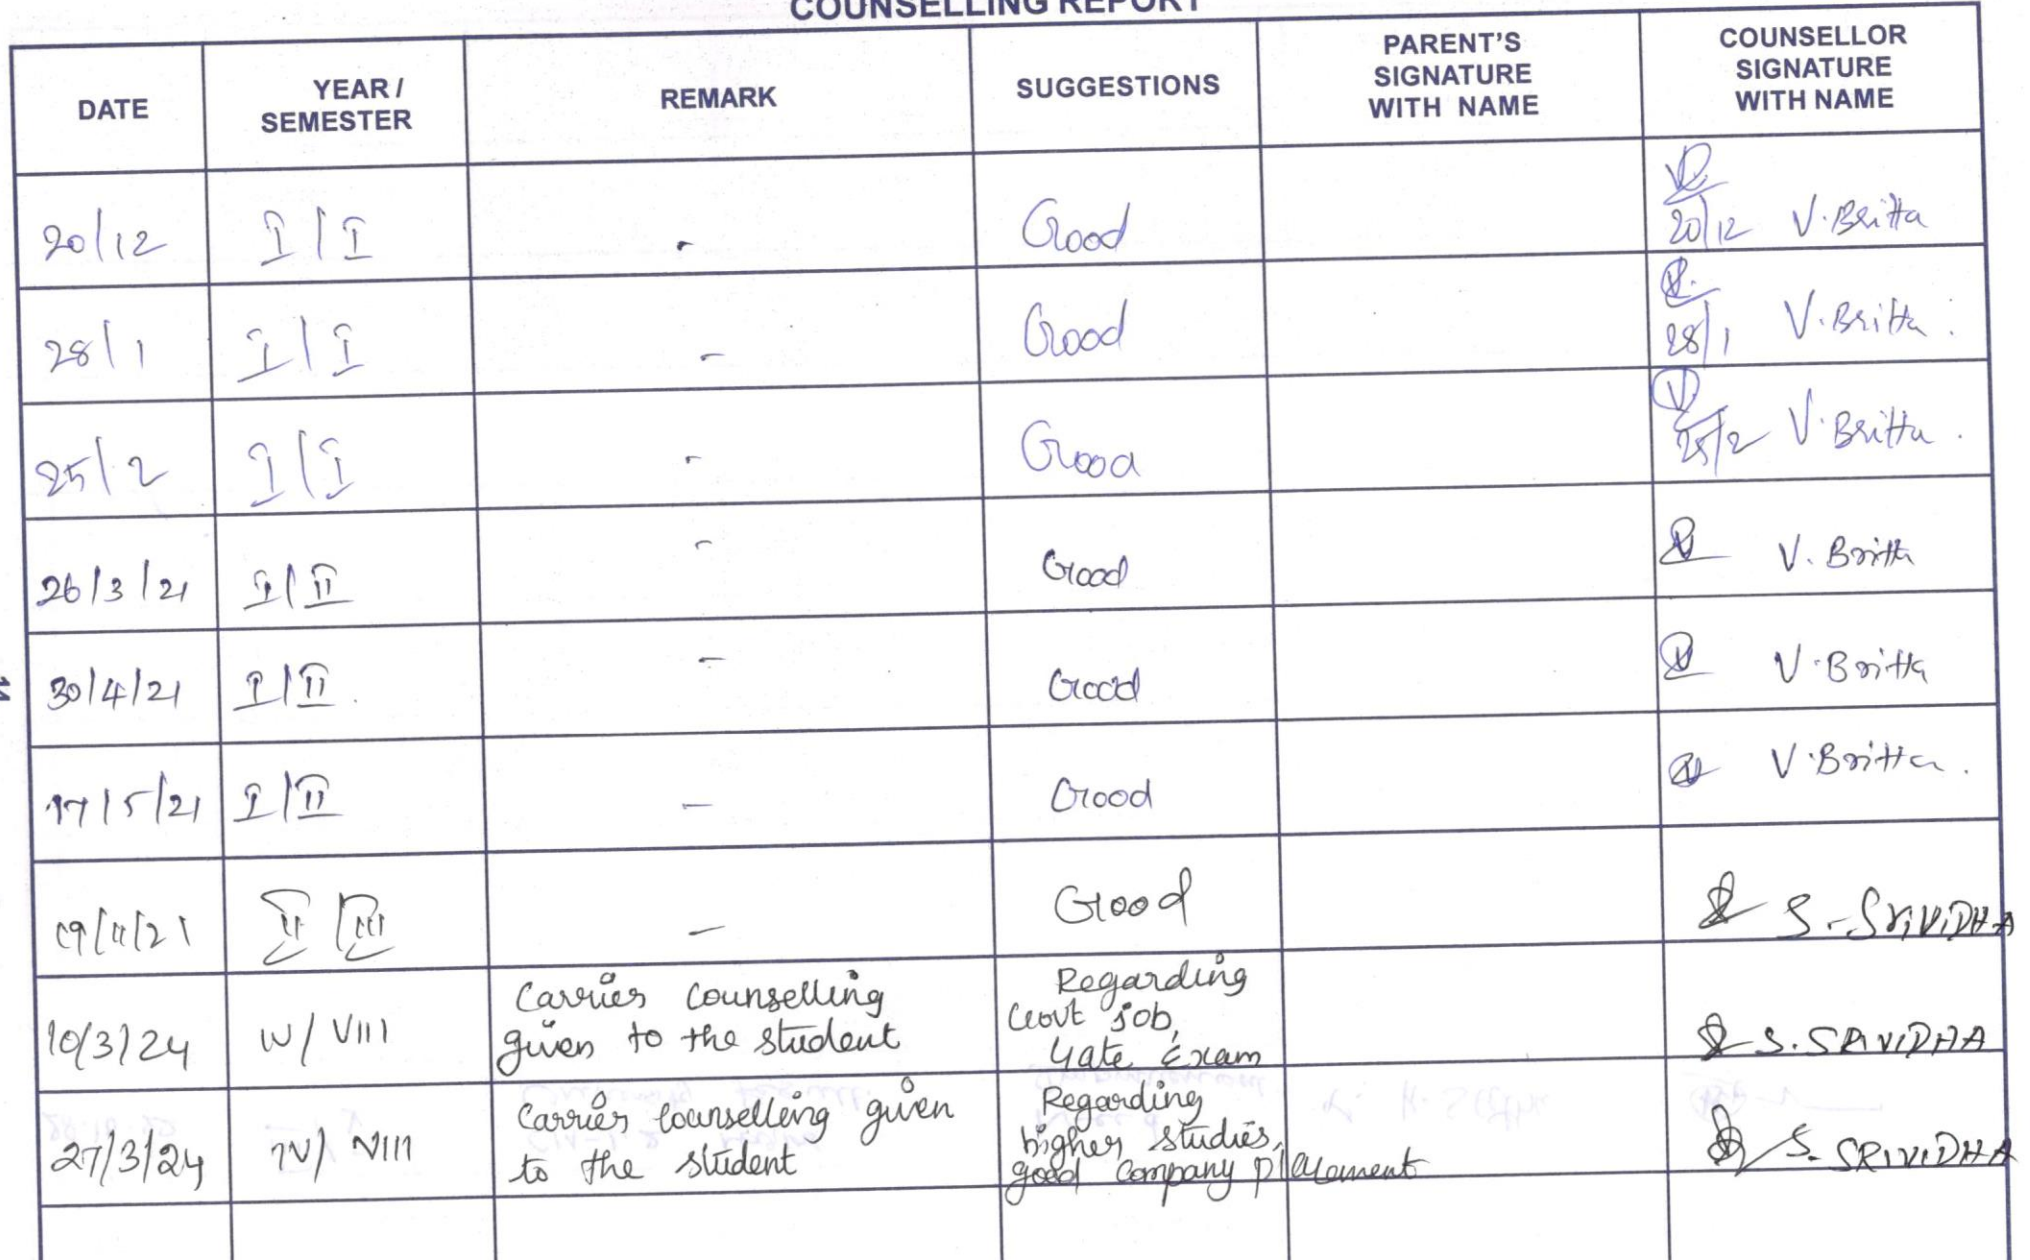 COUNSELLING REPORT
DATE YEAR / SEMESTER REMARK SUGGESTIONS PARENT'S SIGNATURE WITH NAME COUNSELLOR SIGNATURE WITH NAME
20/12 I / I - Good 20/12 V. Britta
28/1 I / I - Good 28/1 V. Britta
25/2 I / I - Good 25/2 V. Britta
26/3/21 I / II - Good V. Britta
30/4/21 I / II - Good V. Britta
17/5/21 I / II - Good V. Britta
19/11/21 II / III - Good S. SRIVIDHA
10/3/24 IV / VIII Carrier counselling given to the student Regarding Govt job, Gate Exam S. SRIVIDHA
27/3/24 IV / VIII Carrier counselling given to the student Regarding higher studies, good company placement S. SRIVIDHA